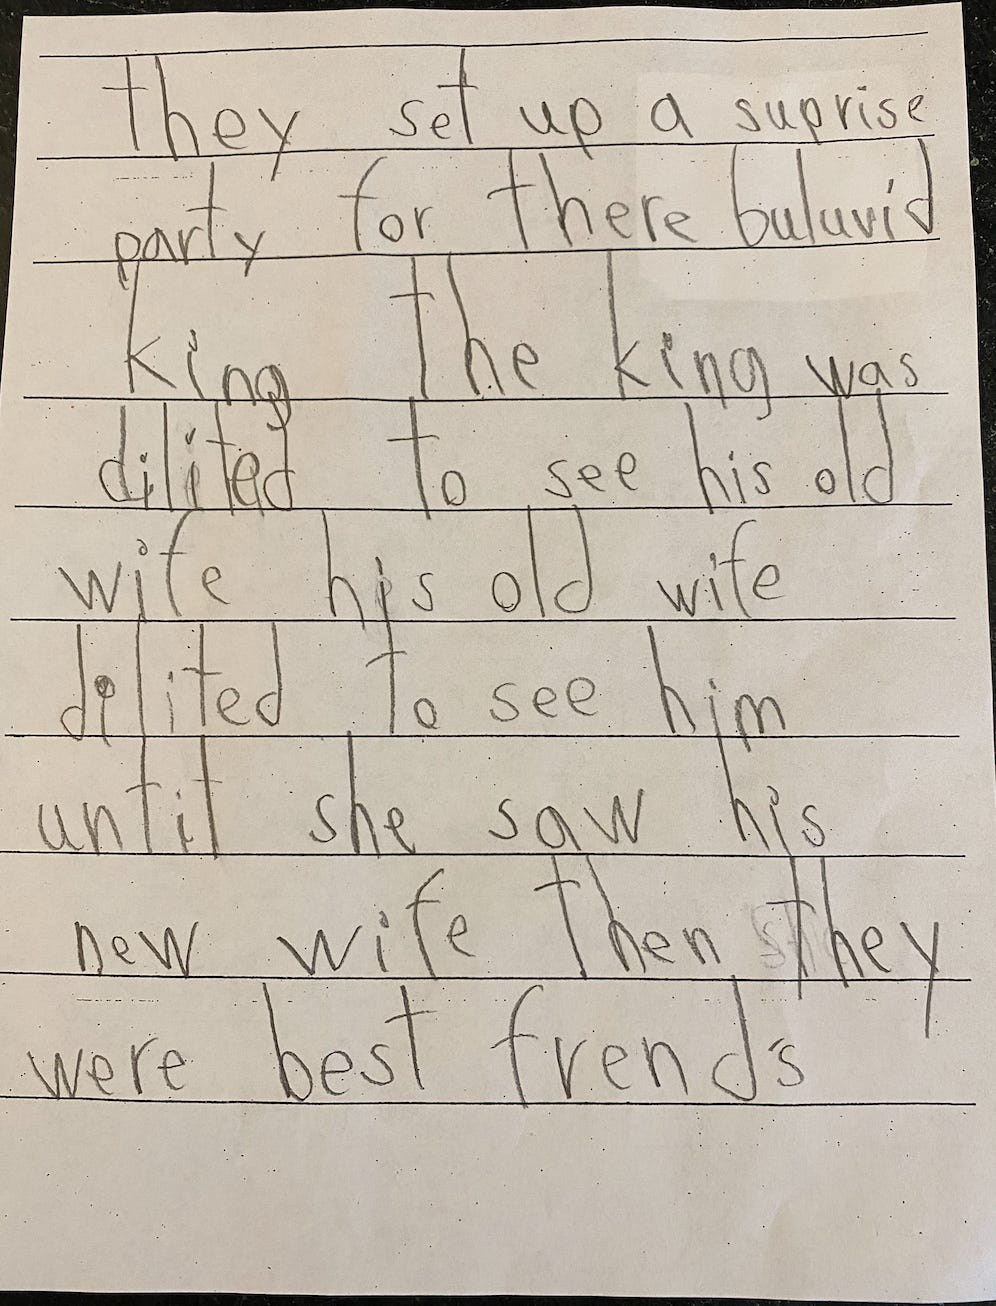 they set up a suprise
party for there buluvid
king the king was
dilited to see his old
wife his old wife
delited to see him
until she saw his
new wife then they
were best frends